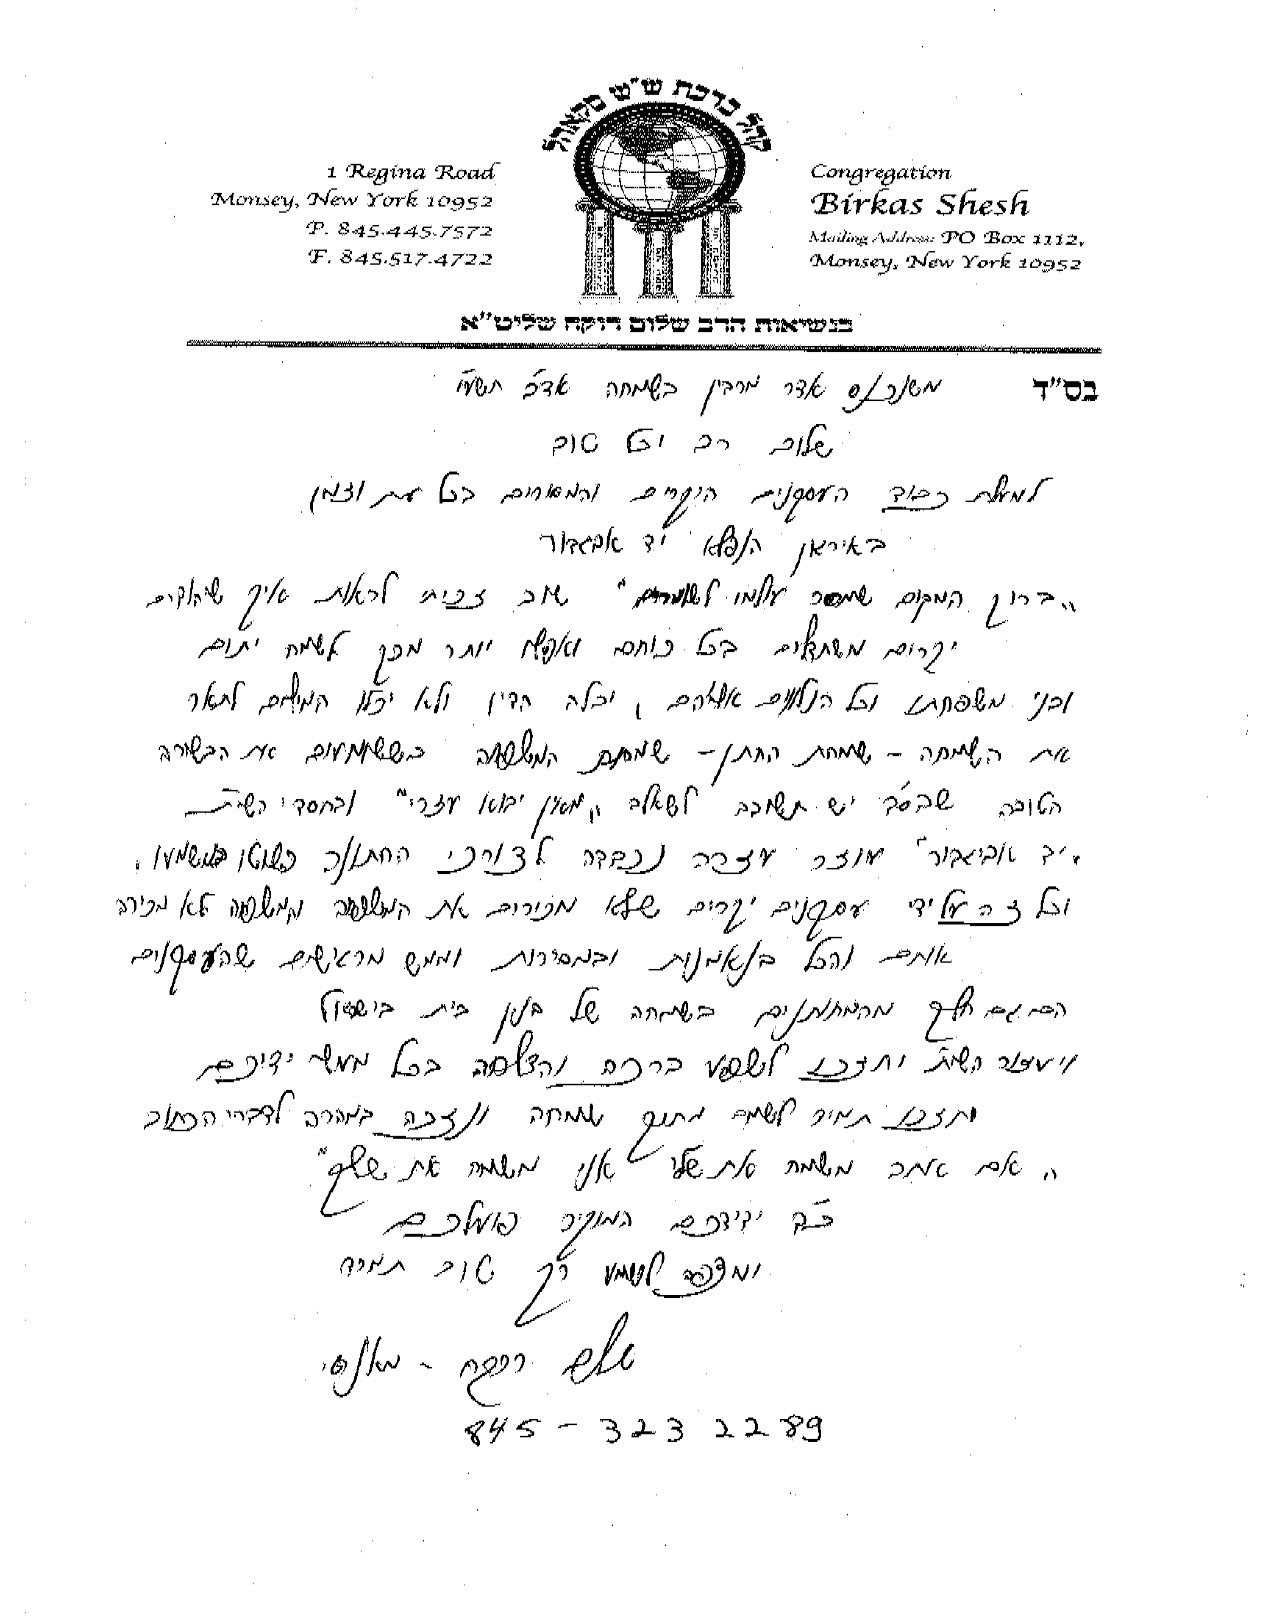 קהל ברכת ש"ש סקאהל
1 Regina Road
Monsey, New York 10952
P. 845.445.7572
F. 845.517.4722
Congregation
Birkas Shesh
Mailing Address: PO Box 1112,
Monsey, New York 10952
בנשיאות הרב שלום רוקח שליט"א
בס"ד
משנכנס אדר מרבין בשמחה אד"ר
שלום רב וכל טוב
למעלת כבוד העסקנים היקרים והמסורים בכל עת וזמן
הנפלא יד אביגדור
"ברוך המקום שמסר עולמו לשומרים" שוב זכינו לראות איך שיהודים
יקרים משתדלים בכל כוחם ואפילו יותר מכך לשמח יתום
ובני משפחתו וכל הנלווים אליהם, יכלה הדיו ולא יכלו המילים לתאר
את השמחה - שמחת החתן - שמחת המשפחה כששומעים את הבשורה
הטובה שבס"ד יש תשובה לשאלה "מאין יבוא עזרי" ובחסדי השי"ת
"יד אביגדור" עוזר עזרה נכבדה לצורכי החתונה כפשוטו כמשמעו,
וכל זה על ידי עסקנים יקרים שלא מכירים את המשפחה והמשפחה לא מכירה
אותם והכל בנאמנות ובמסירות וממש מרגישים שהעסקנים
הם גם חלק מהמחותנים בשמחה של בנין בית בישראל
ויעזור השי"ת ותזכו לשפע ברכה והצלחה בכל מעשי ידיכם
ותזכו תמיד לשמח מתוך שמחה ונזכה במהרה לדברי הכתוב
"אם אתה משמח את שלי אני משמח את שלך"
כ"ד ידידכם המוקיר פועלכם
ומצפה לשמוע רק טוב תמיד
שלום רוקח - מאנסי
845 - 323 2289